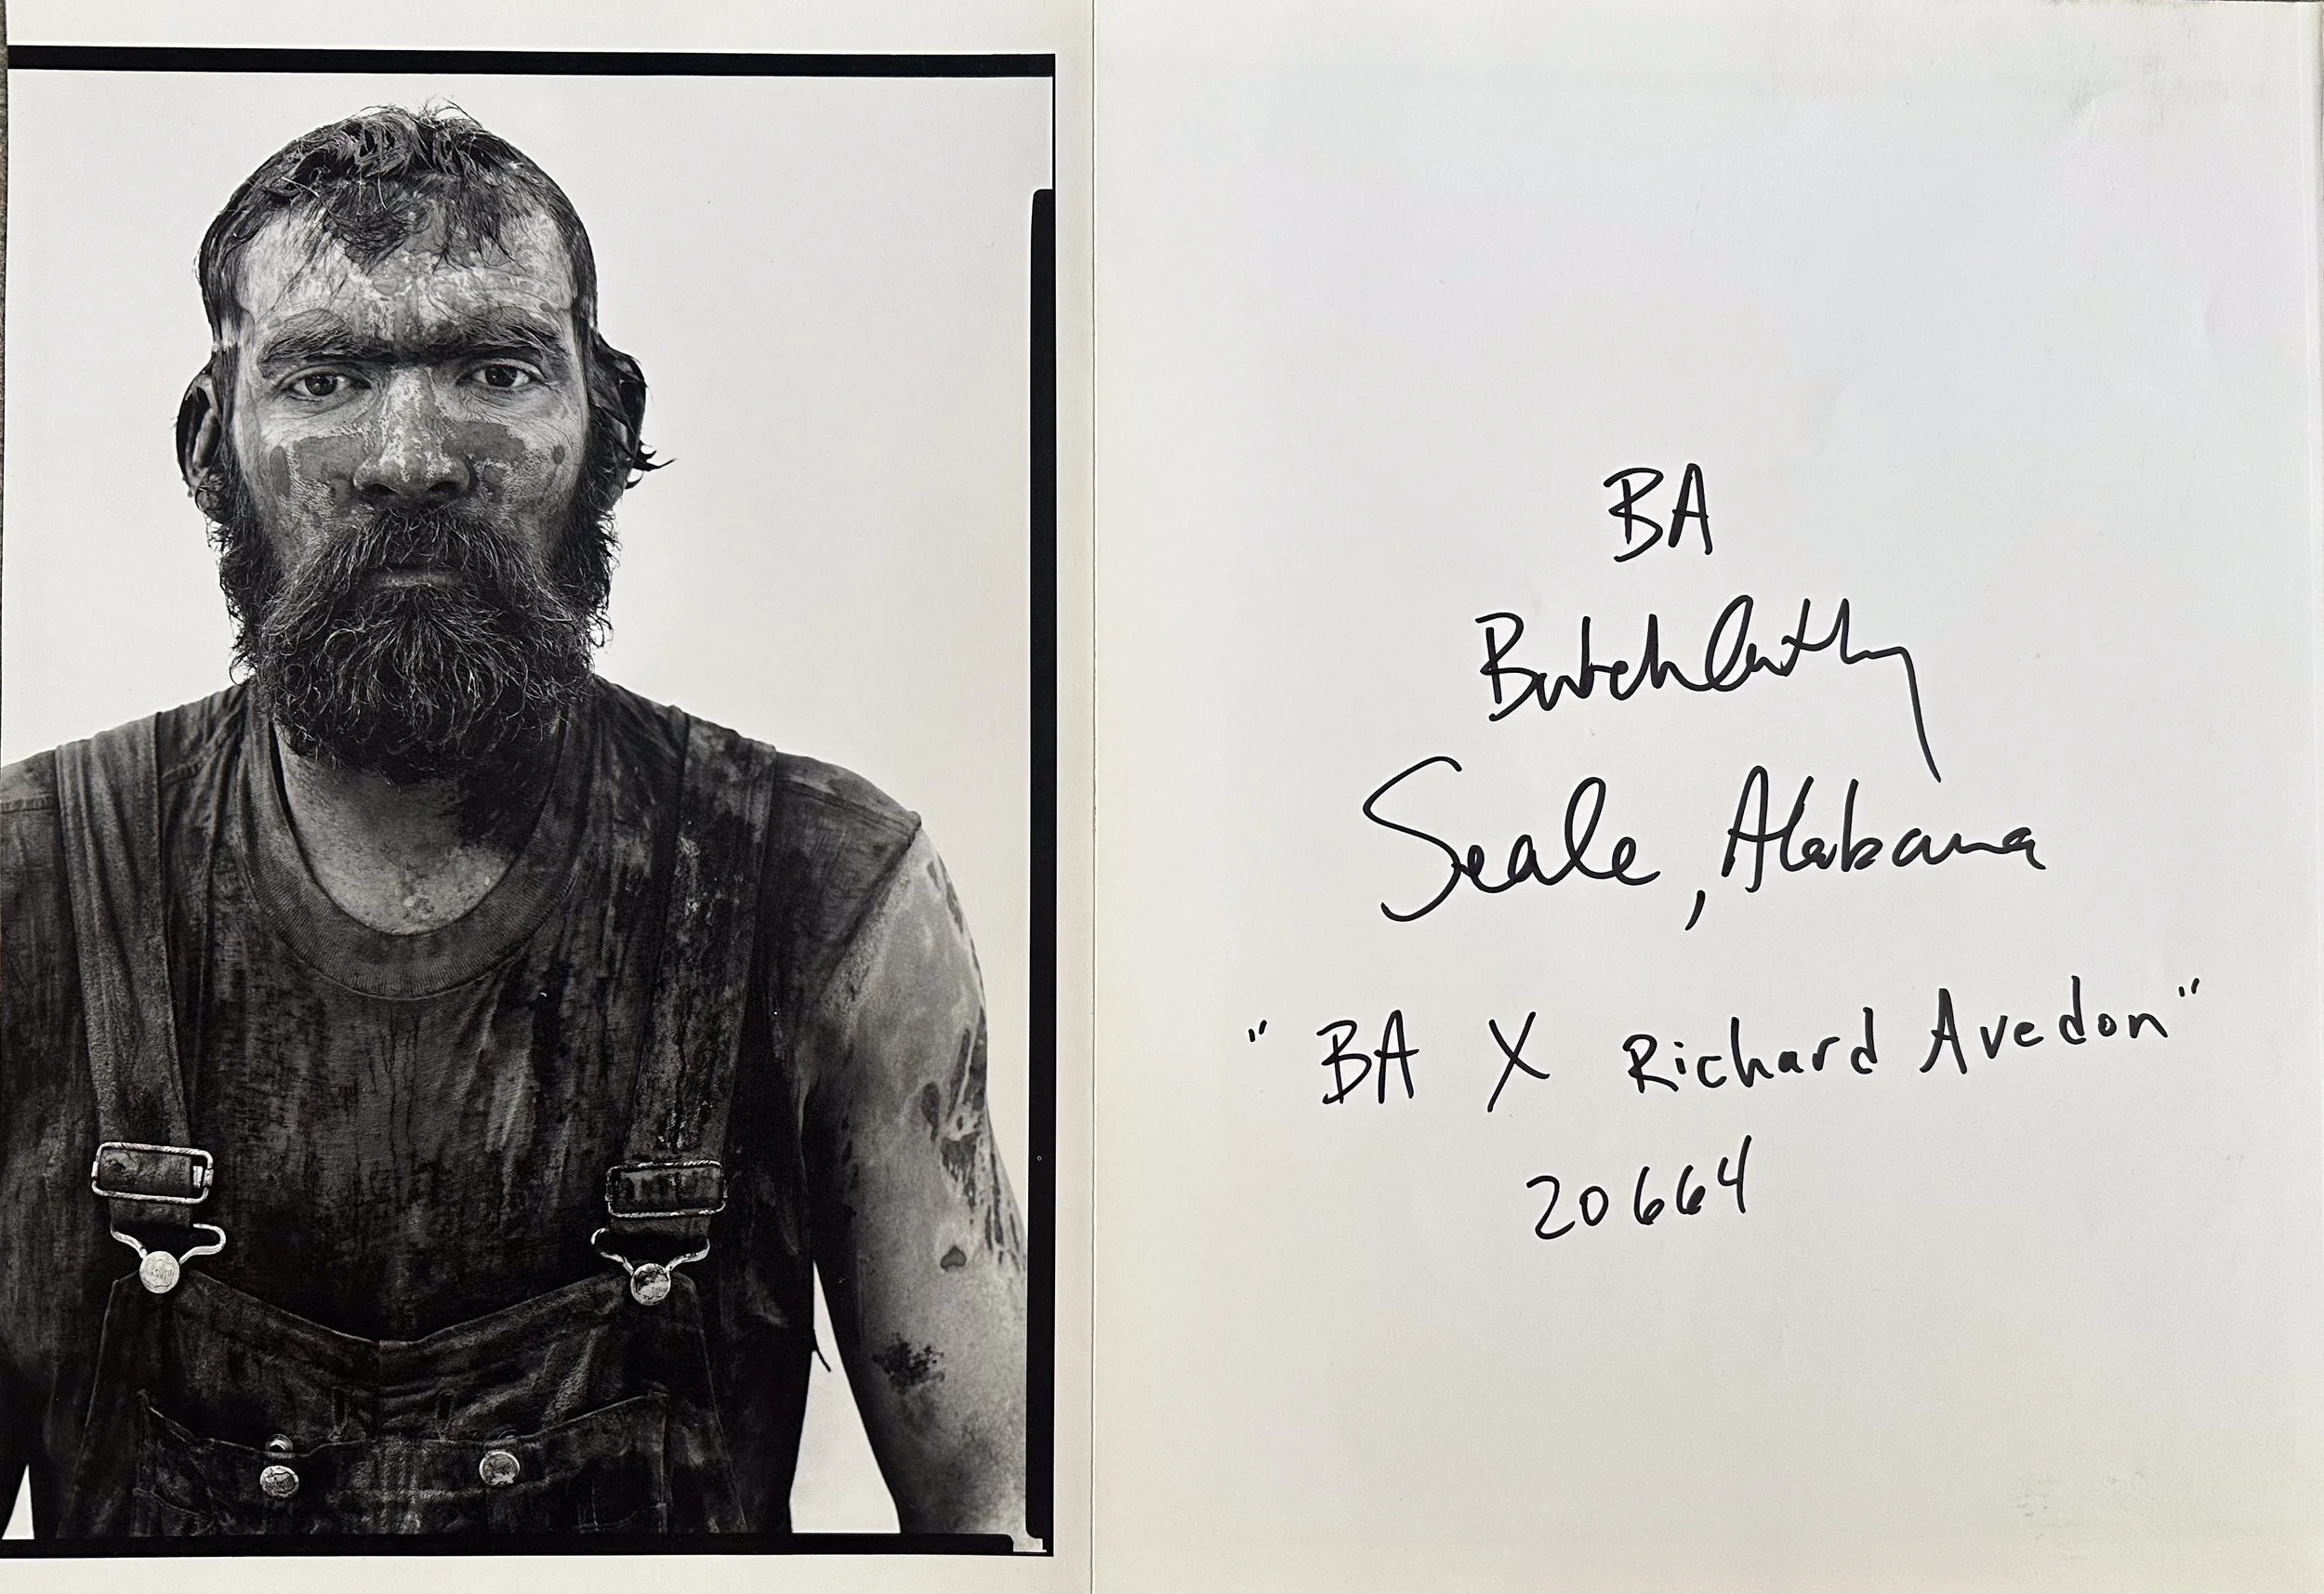 BA
Butch Anthony
Seale, Alabama
"BA X Richard Avedon"
20664